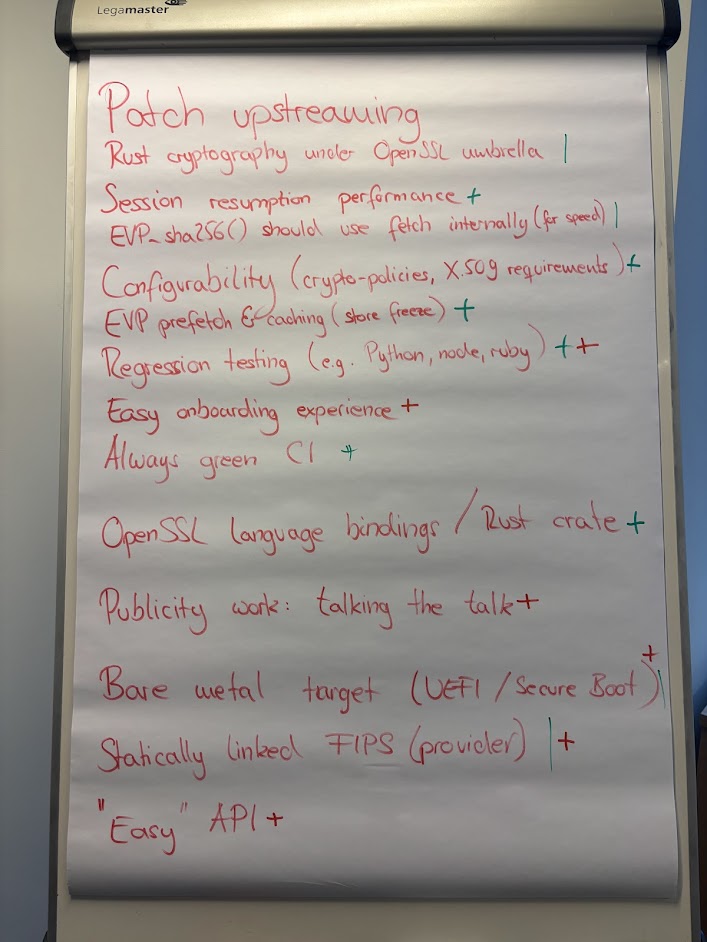 Legamaster
Patch upstreaming
Rust cryptography under OpenSSL umbrella |
Session resumption performance +
EVP_sha256() should use fetch internally (for speed) |
Configurability (crypto-policies, X.509 requirements) +
EVP prefetch & caching (store freeze) +
Regression testing (e.g. Python, node, ruby) ++
Easy onboarding experience +
Always green CI +
OpenSSL language bindings / Rust crate +
Publicity work: talking the talk +
Bare metal target (UEFI / Secure Boot) + |
Statically linked FIPS (provider) | +
"Easy" API +